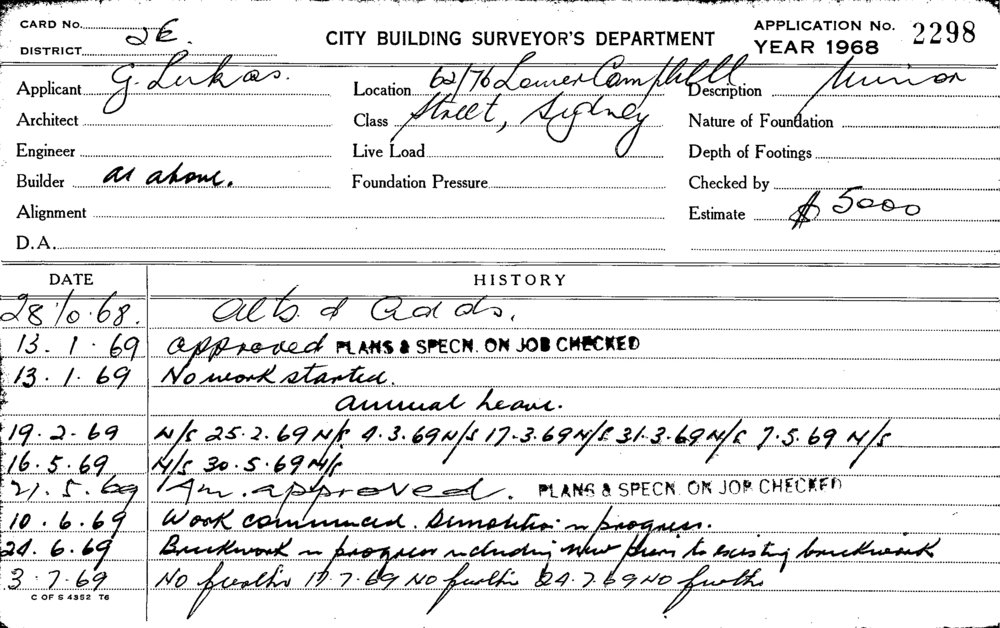 CARD No. 2E. CITY BUILDING SURVEYOR'S DEPARTMENT APPLICATION No. 2298
DISTRICT YEAR 1968
Applicant G. Lukas. Location 62/76 Lower Campbell Description Minor
Architect Class Street, Sydney Nature of Foundation
Engineer Live Load Depth of Footings
Builder as above. Foundation Pressure Checked by
Alignment Estimate $ 5000
D.A.
DATE HISTORY
28.10.68. Alts. & Adds.
13.1.69 approved PLANS & SPECN. ON JOB CHECKED
13.1.69 No work started.
annual leave.
19.2.69 N/S 25.2.69 N/S 4.3.69 N/S 17.3.69 N/S 31.3.69 N/S 7.5.69 N/S
16.5.69 N/S 30.5.69 N/S
21.5.69 Am. approved. PLANS & SPECN. ON JOB CHECKED
10.6.69 Work commenced. Demolition in progress.
24.6.69 Brickwork in progress including new piers to existing brickwork
3.7.69 No further 17.7.69 No further 24.7.69 No further
C OF S 4352 76